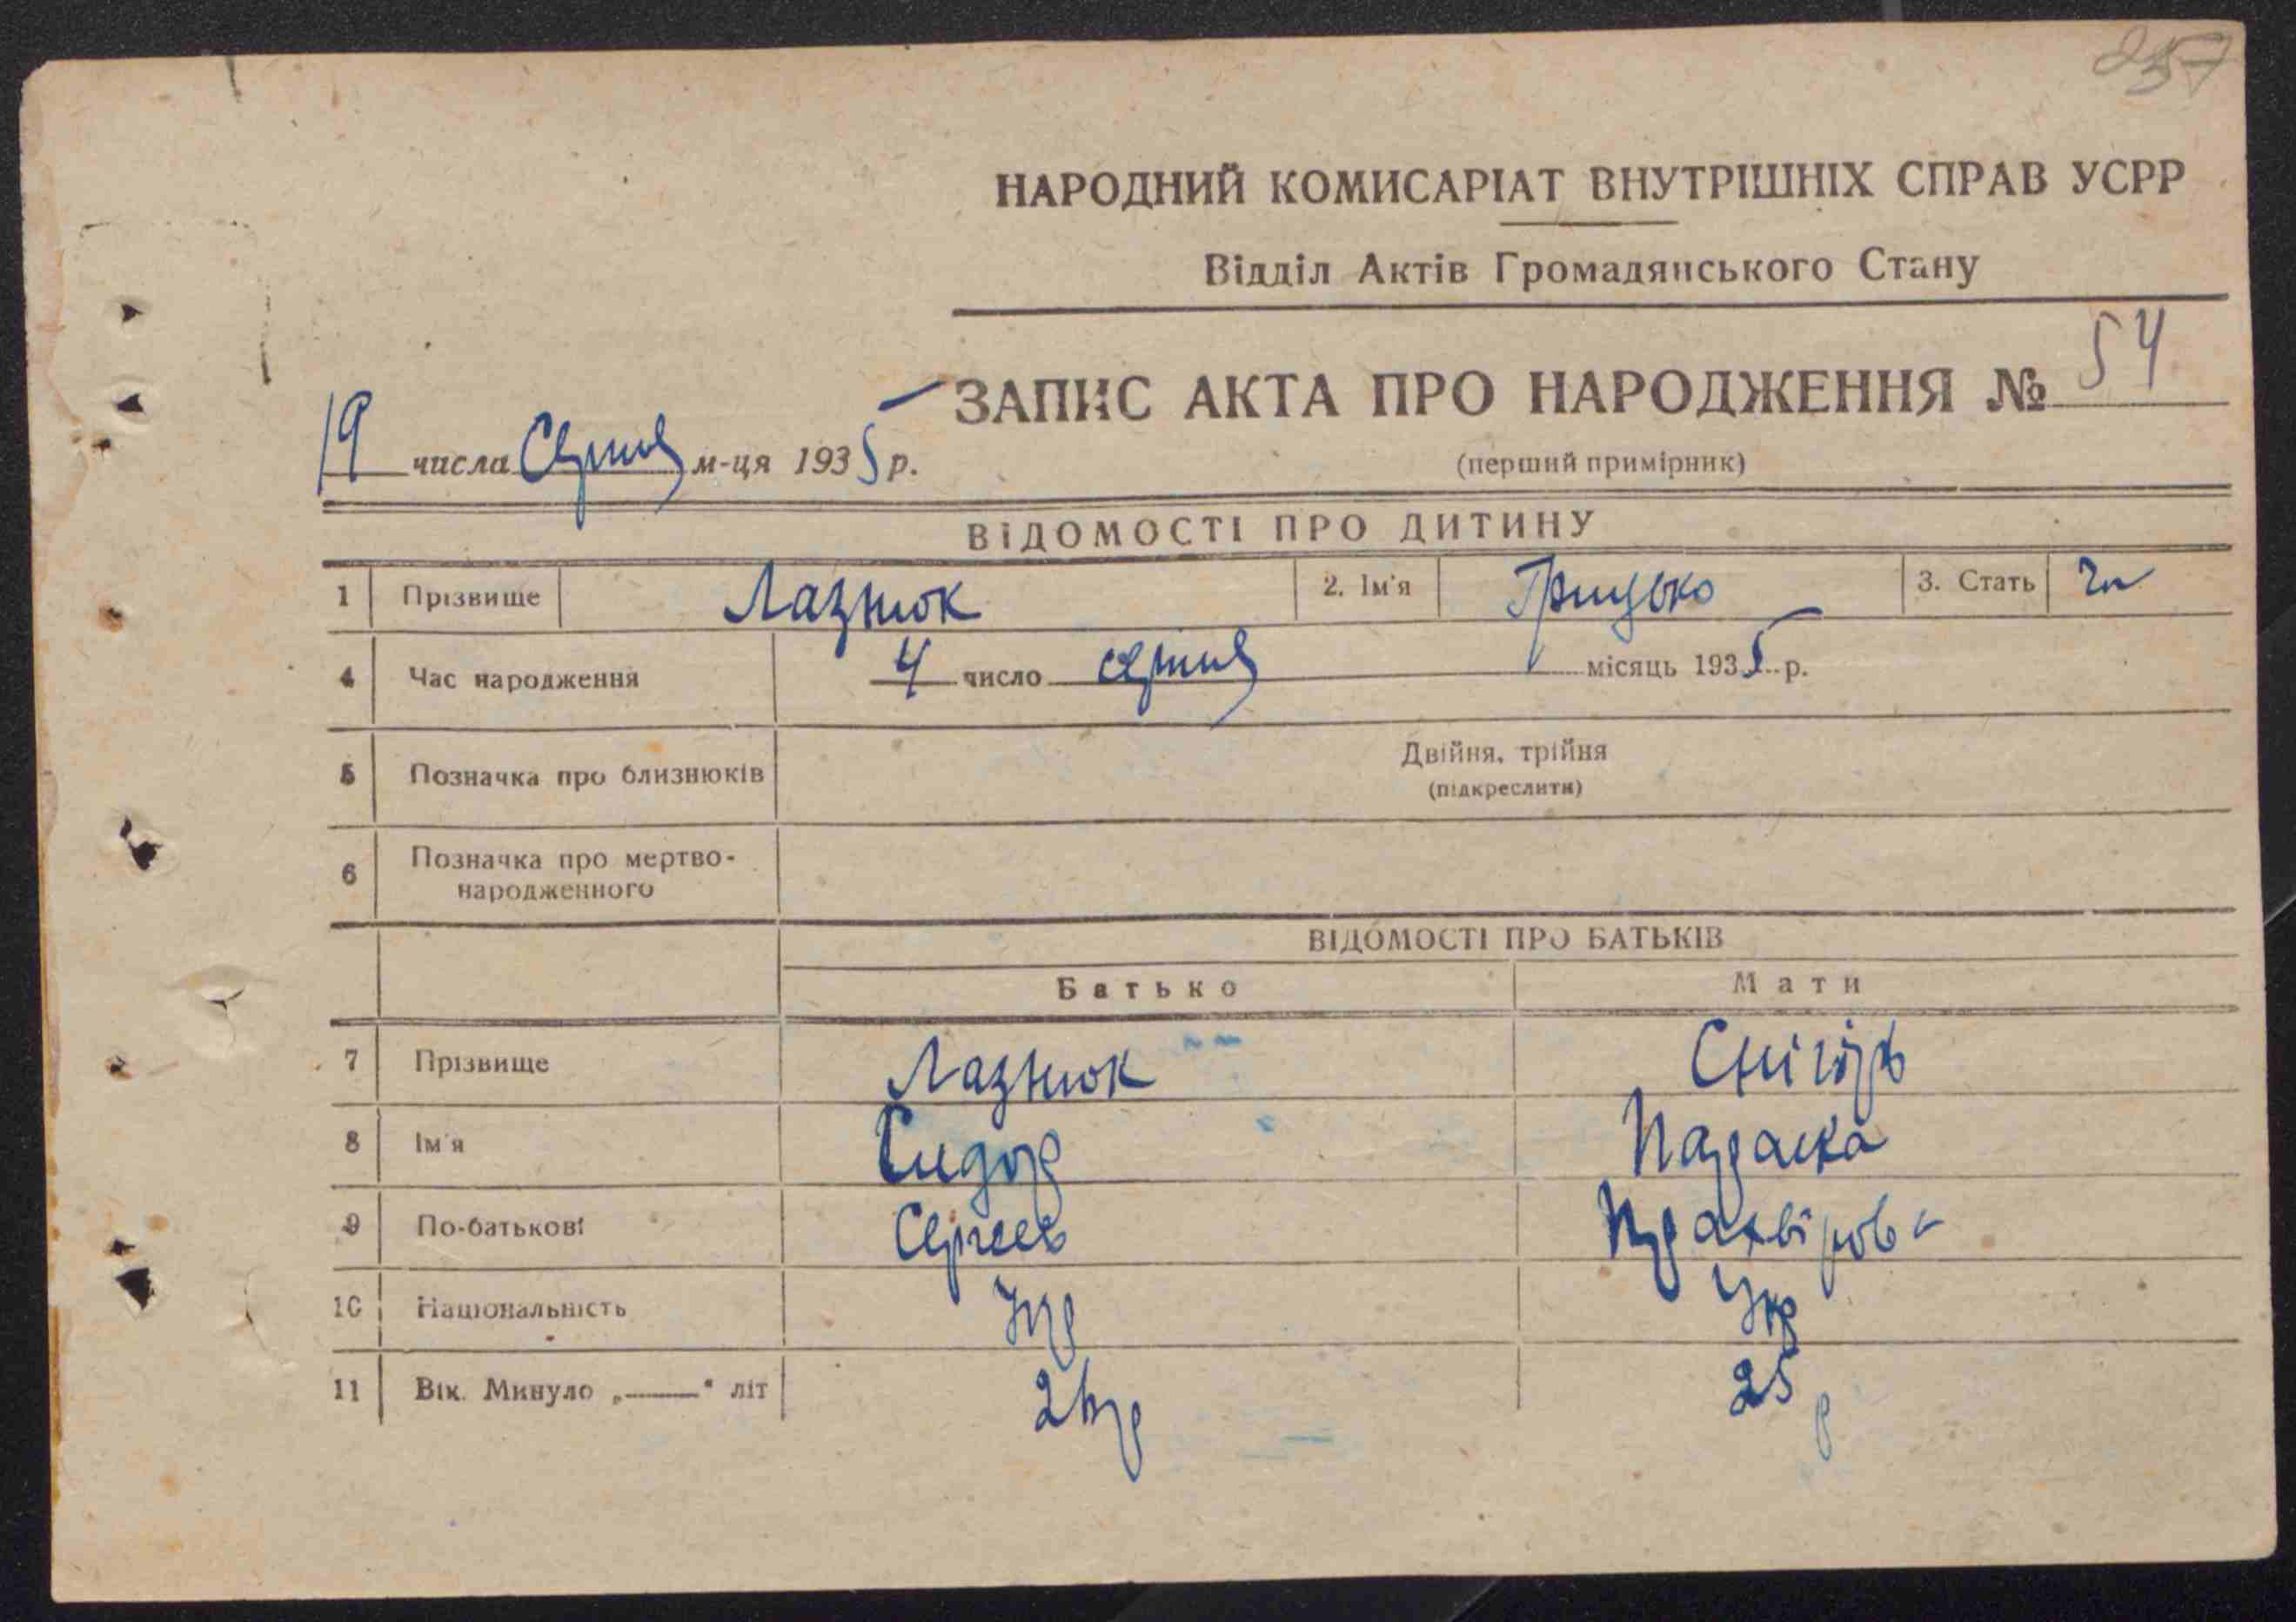 257
НАРОДНИЙ КОМИСАРІАТ ВНУТРІШНІХ СПРАВ УСРР
Відділ Актів Громадянського Стану
ЗАПИС АКТА ПРО НАРОДЖЕННЯ № 54
19 числа Серпня м-ця 1935 р.
(перший примірник)
ВІДОМОСТІ ПРО ДИТИНУ
1 Прізвище Лазнюк 2. Ім'я Грицько 3. Стать
4 Час народження 4 число серпня місяць 1935 р.
5 Позначка про близнюків Двійня, трійня
(підкреслити)
6 Позначка про мертво-
народженного
ВІДОМОСТІ ПРО БАТЬКІВ
Батько Мати
7 Прізвище Лазнюк Снігірь
8 Ім'я Сидор Параска
9 По-батькові Сергеев
10 Національність Укр Укр
11 Вік. Минуло „——“ літ 25 р